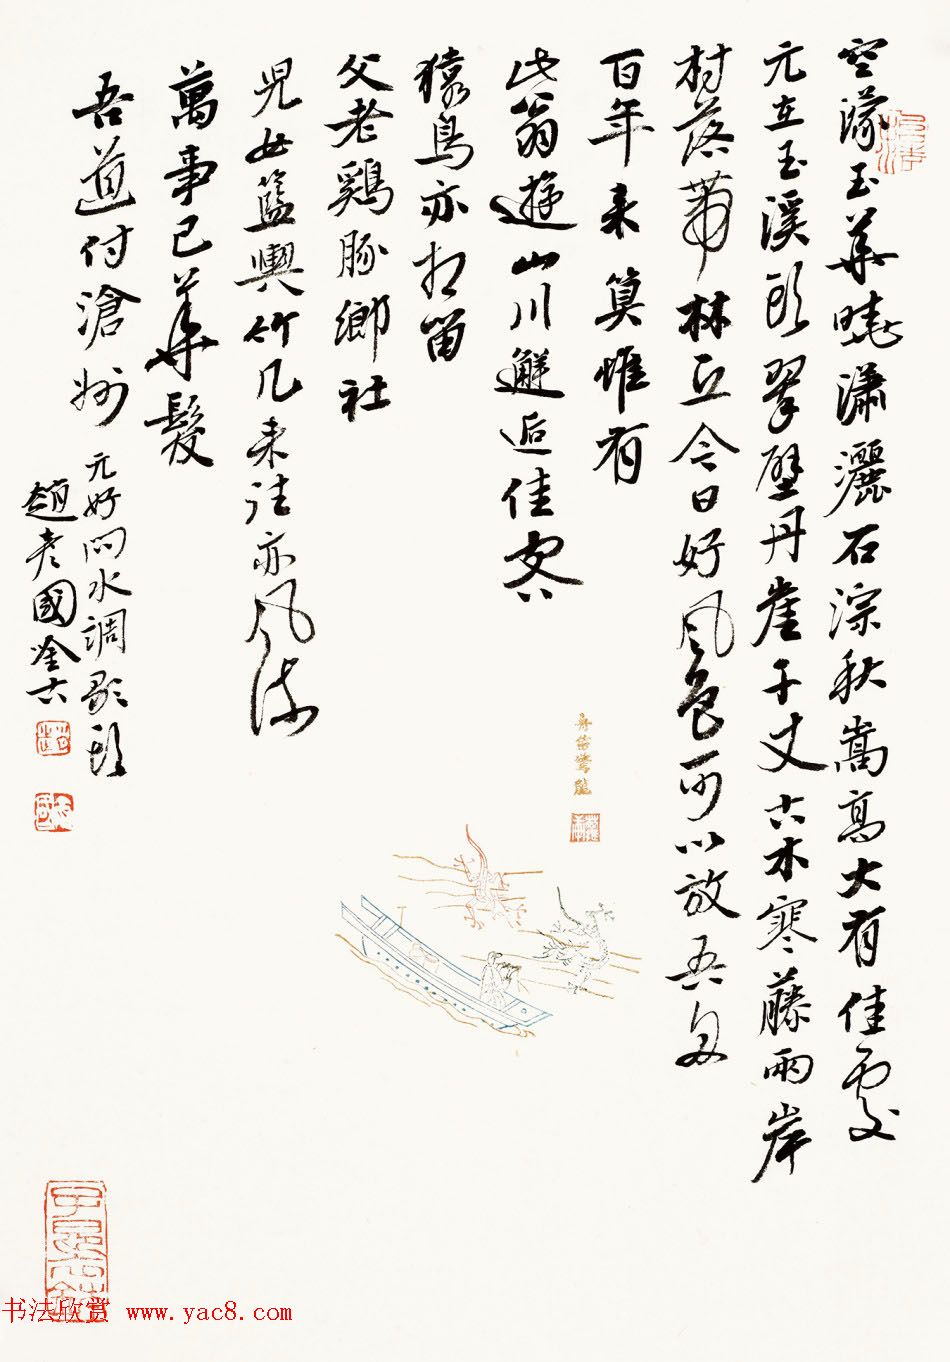 空濛玉華曉瀟灑石淙秋嵩高大有佳處
元在玉溪頭翠壁丹崖千丈古木寒藤兩岸
村落帶林丘今日好風色可以放吾舟
百年来算惟有
此翁遊山川邂逅佳客
猿鳥亦相留
父老鷄豚鄉社
兒女籃輿竹几来往亦風流
萬事已華髮
吾道付滄州
元好问水調歌頭
趙彦國
书法欣赏 www.yac8.com